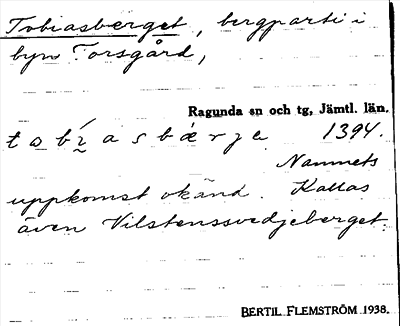 Tobiasberget, bergparti i
byn Torsgård,
Ragunda sn och tg, Jämtl. län.
1394.
Namnets
uppkomst okänd. Kallas
även Vilstenssvedjeberget.
BERTIL FLEMSTRÖM 1938.